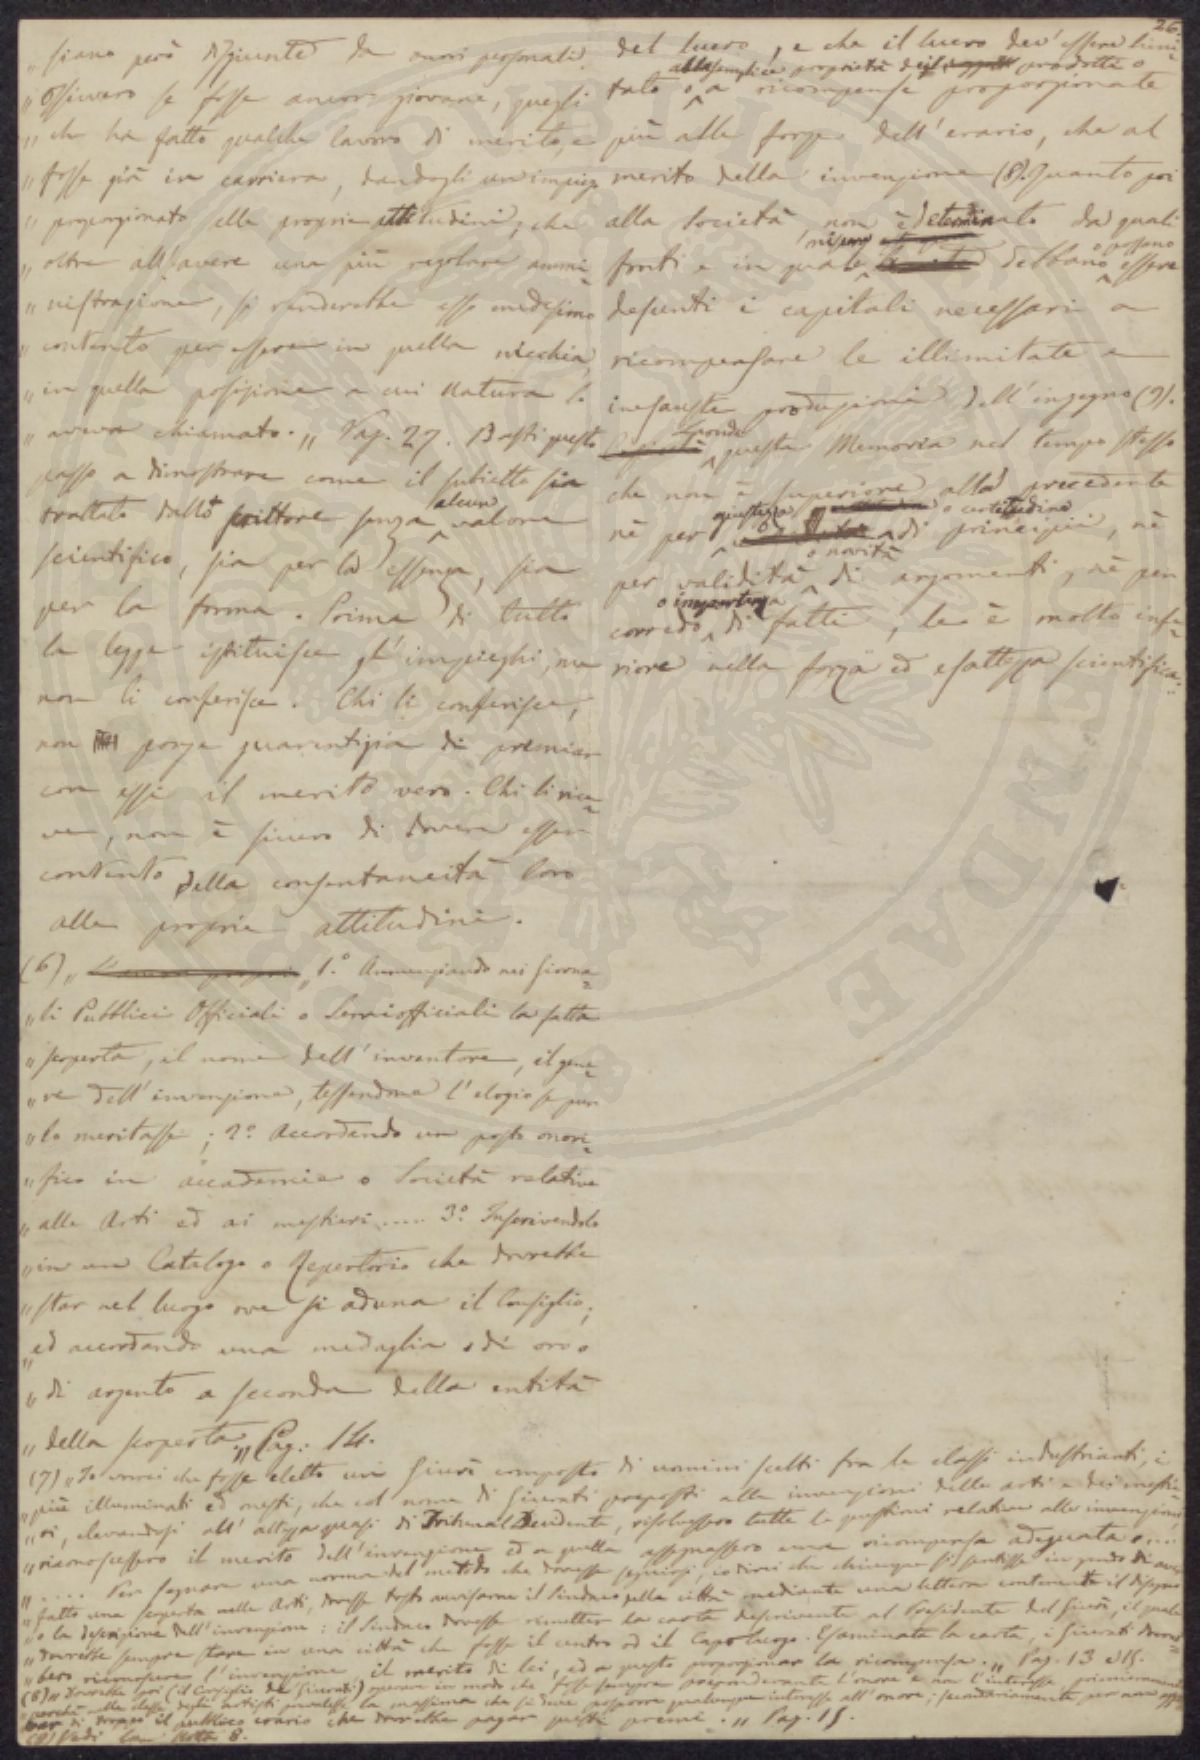 26.
„ siano però disgiunte da onori personali.
„ Ossivvero se fosse ancor giovane, quegli
„ che ha fatto qualche lavoro di merito, e
„ fosse già in carriera, dandogli un'impiego
„ proporzionato alle proprie attitudini; che
„ oltre all'avere una più regolare ammi=
„ nistrazione, si renderebbe esso medesimo
„ contento per essere in quella nicchia,
„ in quella posizione a cui Natura lo
„ aveva chiamato. „ Pag. 27. Basti questo
passo a dimostrare come il subietto sia
trattato dallo scrittore senza alcun valore
scientifico, sia per la essenza, sia
per la forma. Prima di tutto
la legge istituisce gl'impieghi, ma
non li conferisce. Chi li conferisce,
non porge guarentigia di premiar
con essi il merito vero. Chi li rice=
ve, non è sicuro di dovere esser
contento della consentaneità loro
alle proprie attitudini.
(6) „ 1.° Annunziando nei Giorna=
„ li Pubblici Officiali o Semiofficiali la fatta
„ scoperta, il nome dell'inventore, il gene=
„ re dell'invenzione, tessendone l'elogio se pur
„ lo meritasse; 2.° Accordando un posto onori=
„ fico in accademie o Società relative
„ alle Arti ed ai mestieri..... 3.° Inscrivendolo
„ in un Catalogo o Repertorio che dovrebbe
„ star nel luogo ove si aduna il Consiglio;
„ ed accordando una medaglia o di oro o
„ di argento a seconda della entità
„ della scoperta. „ Pag: 14.
del lucro, e che il lucro dev'essere limi=
tato o alla semplice proprietà dei prodotti o a ricompense proporzionate
più alle forze dell'erario, che al
merito della invenzione (8). Quanto poi
alla Società non è determinato da quali
fonti e in quale misura debbano o possano essere
desunti i capitali necessari a
ricompensare le illimitate e
inesauste produzioni dell'ingegno (9).
questa Memoria nel tempo stesso
che non è superiore alla precedente
nè per giustezza o certitudine di principii, nè
per validità o novità di argomenti, nè per
corredo o importanza di fatti, le è molto infe=
riore nella forza ed esattezza scientifica.
(7) „ Io vorrei che fosse eletto un Giurì composto di uomini scelti fra le classi industrianti, i
„ più illuminati ed onesti, che col nome di Giurati preposti alle invenzioni delle arti e dei mestie=
„ ri, elevandosi all'altezza quasi di Tribunal Decidente, risolvessero tutte le questioni relative alle invenzioni
„ riconoscessero il merito dell'invenzione ed a quella assegnassero una ricompensa adeguata o....
„ ..... Per segnare una norma del metodo che dovesse seguirsi, io direi che chiunque si sentisse in grado di aver
„ fatto una scoperta nelle Arti, dovesse tosto avvisarne il Sindaco della città mediante una lettera contenente il disegno
„ o la descrizione dell'invenzione: il Sindaco dovesse rimetter la carta descrivente al Presidente del Giurì, il quale
„ dovrebbe sempre stare in una città che fosse il centro od il Capoluogo. Esaminata la carta, i Giurati dovreb=
„ bero riconoscere l'invenzione, il merito di lei, ed a questo proporzionar la ricompensa. „ Pag. 13 e 15.
(8) „ Dovrebbe poi (il Consiglio dei Giurati) operare in modo che fosse sempre preponderante l'onore e non l'interesse primieramente
„ perchè nelle classi degli artisti prevalesse la massima che si deve posporre qualunque interesse all'onore; secondariamente per non aggra
var di troppo il pubblico erario che dovrebbe pagar questi premi. „ Pag. 15.
(9) Vedi la Nota 8.